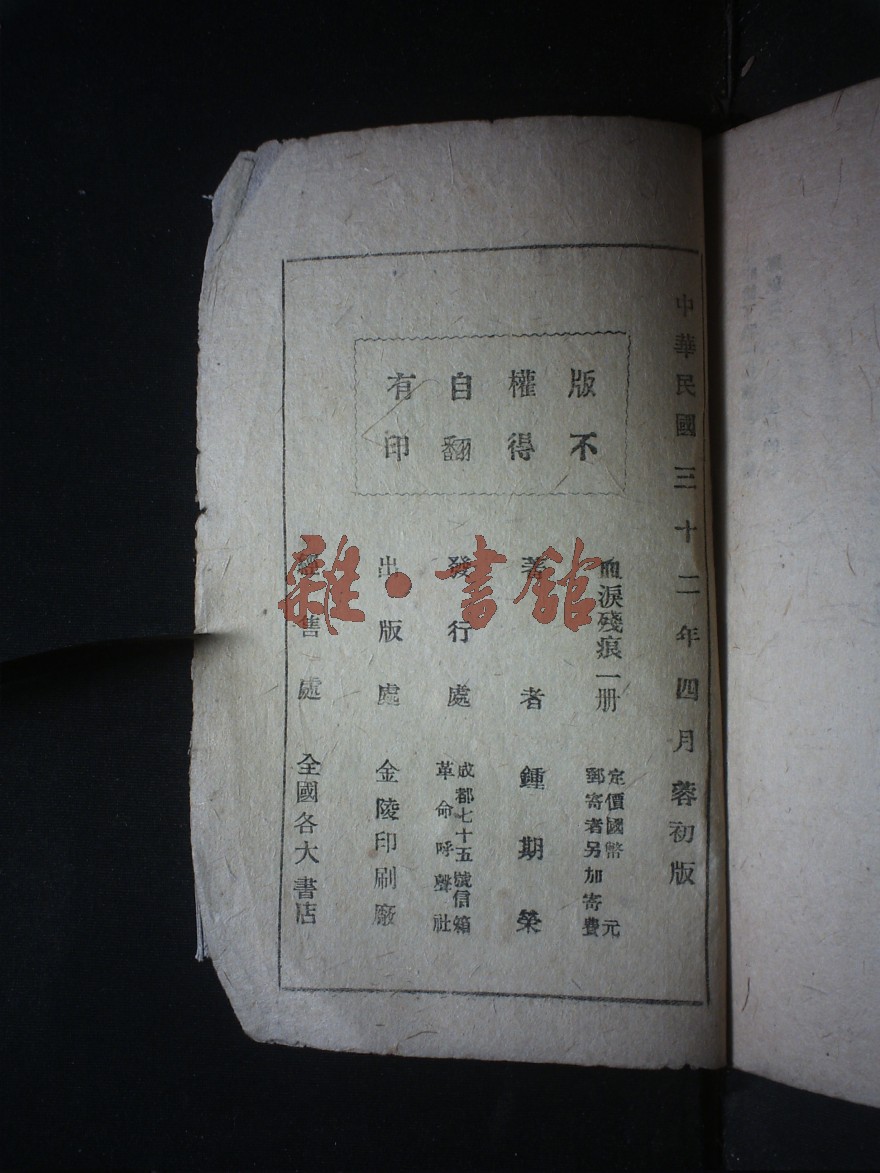 中華民國三十二年四月蓉初版
版權自有
不得翻印
血淚殘痕一册
定價國幣 元
郵寄者另加寄費
著者 鍾期榮
發行處 成都七十五號信箱
革命呼聲社
出版處 金陵印刷廠
經售處 全國各大書店
雜·書館